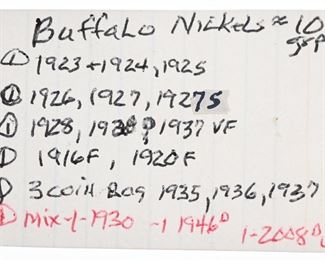 Buffalo Nickels ≈ 10
① 1923 + 1924, 1925
① 1926, 1927, 1927S
① 1928, 1937 VF
① 1916F, 1920F
① 3 coin Bag 1935, 1936, 1937
① Mix -1-1930 -1 1946ᴰ 1-2008ᴰ